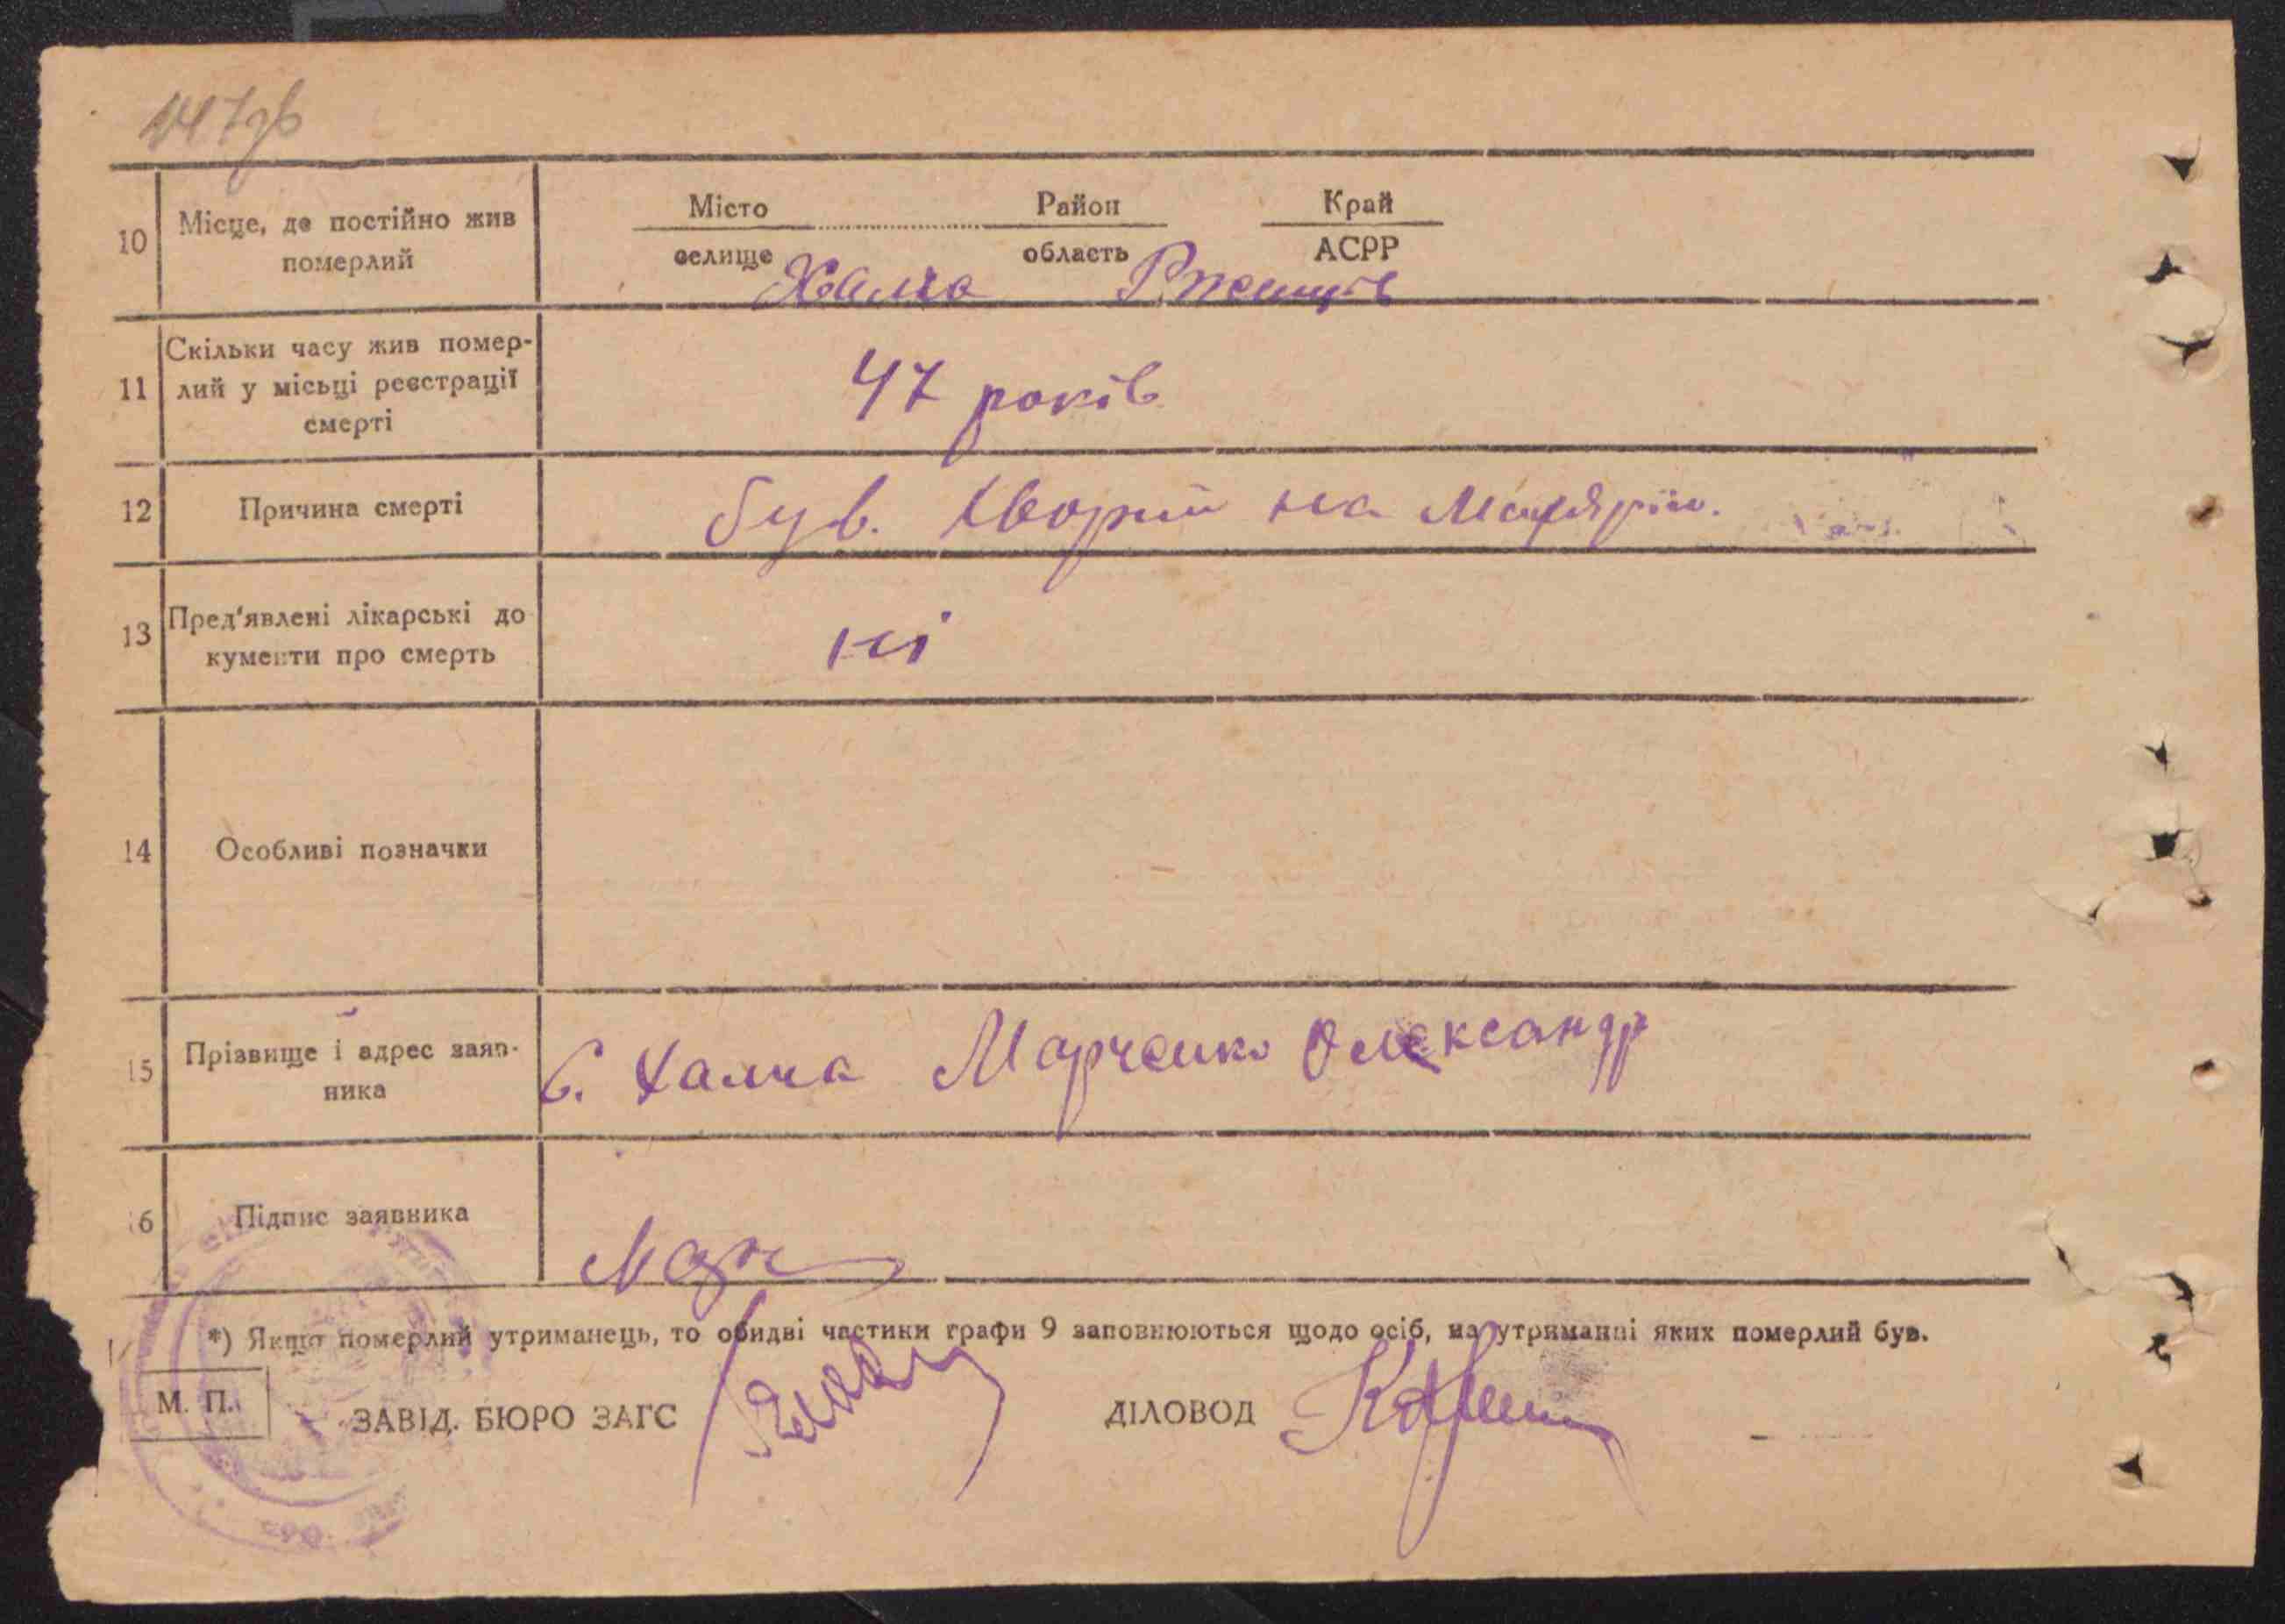 147зв
10
Місце, де постійно жив
померлий
Місто Район Край
селище область АСРР
Халча Ржищів
11
Скільки часу жив помер-
лий у місьці реєстрації
смерті
47 років
12
Причина смерті
був. Хворий на Малярію.
13
Пред'явлені лікарські до
кументи про смерть
ні
14
Особливі позначки
15
Прізвище і адрес заяв-
ника
С. Халча Марченко Олександр
16
Підпис заявника
Мар
*) Якщо померлий утриманець, то обидві частини графи 9 заповнюються щодо осіб, на утриманні яких померлий був.
М. П.
ЗАВІД. БЮРО ЗАГС
ДІЛОВОД